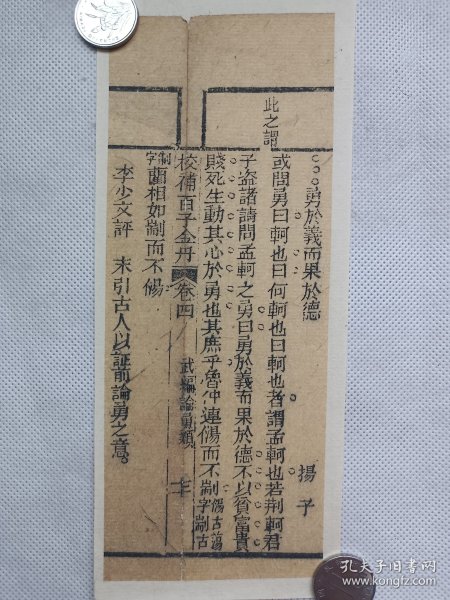 勇於義而果於德
揚子
此之謂
或問勇曰軻也曰何軻也曰軻也者謂孟軻也若荆軻君
子盗諸請問孟軻之勇曰勇於義而果於德不以貧富貴
賤死生動其心於勇也其庶乎魯仲連傷而不剬
傷古蕩
字剬古
校補百子金丹
卷四
武編論勇類
七
制
字
藺相如剬而不傷
李少文評 末引古人以証前論勇之意。
孔夫子旧书网
www.kongfz.com